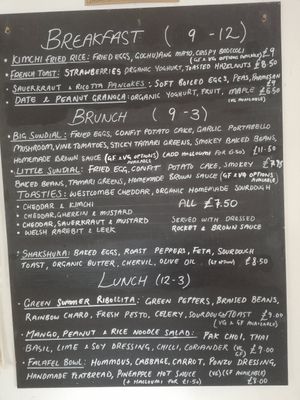 BREAKFAST (9-12)
• KIMCHI FRIED RICE: FRIED EGGS, GOCHUJANG MAYO, CRISPY BROCCOLI £9
(GF & VG OPTIONS AVAILABLE)
• FRENCH TOAST: STRAWBERRIES ORGANIC YOGHURT, TOASTED HAZELNUTS £8.50
• SAUERKRAUT & RICOTTA PANCAKES: SOFT BOILED EGGS, PEAS, PARMESAN £9
• DATE & PEANUT GRANOLA: ORGANIC YOGHURT, FRUIT, MAPLE £6.50
(VG AVAILABLE)
BRUNCH (9-3)
• BIG SUNDIAL: FRIED EGGS, CONFIT POTATO CAKE, GARLIC PORTABELLO
MUSHROOM, VINE TOMATOES, STICKY TAMARI GREENS, SMOKEY BAKED BEANS,
HOMEMADE BROWN SAUCE (GF & VG OPTIONS AVAILABLE) (ADD HALLOUMI FOR £1.50) £11.50
• LITTLE SUNDIAL: FRIED EGG, CONFIT POTATO CAKE, SMOKEY
BAKED BEANS, TAMARI GREENS, HOMEMADE BROWN SAUCE (GF & VG OPTIONS AVAILABLE)
TOASTIES: WESTCOMBE CHEDDAR, ORGANIC HOMEMADE SOURDOUGH
• CHEDDAR & KIMCHI
ALL £7.50
• CHEDDAR, GHERKIN & MUSTARD
• CHEDDAR, SAUERKRAUT & MUSTARD SERVED WITH DRESSED
• WELSH RAREBIT & LEEK ROCKET & BROWN SAUCE
• SHAKSHUKA: BAKED EGGS, ROAST PEPPERS, FETA, SOURDOUGH
TOAST, ORGANIC BUTTER, CHERVIL, OLIVE OIL (GF OPTION) £8.50
LUNCH (12-3)
• GREEN SUMMER RIBOLLITA: GREEN PEPPERS, BRAISED BEANS,
RAINBOW CHARD, FRESH PESTO, CELERY, SOURDOUGH TOAST £9.00
(VG & GF AVAILABLE)
• MANGO, PEANUT & RICE NOODLE SALAD: PAK CHOI, THAI
BASIL, LIME & SOY DRESSING, CHILLI, CORIANDER (VG GF) £9.00
• FALAFEL BOWL: HUMMOUS, CABBAGE, CARROT, PONZU DRESSING,
HANDMADE FLATBREAD, PINEAPPLE HOT SAUCE (VG) (GF AVAILABLE)
(+ HALLOUMI FOR £1.50) £9.00